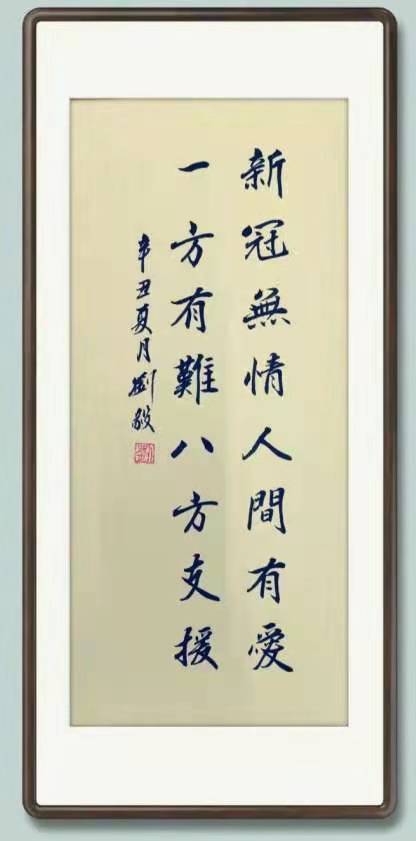 新冠無情人間有愛
一方有難八方支援
辛丑夏月